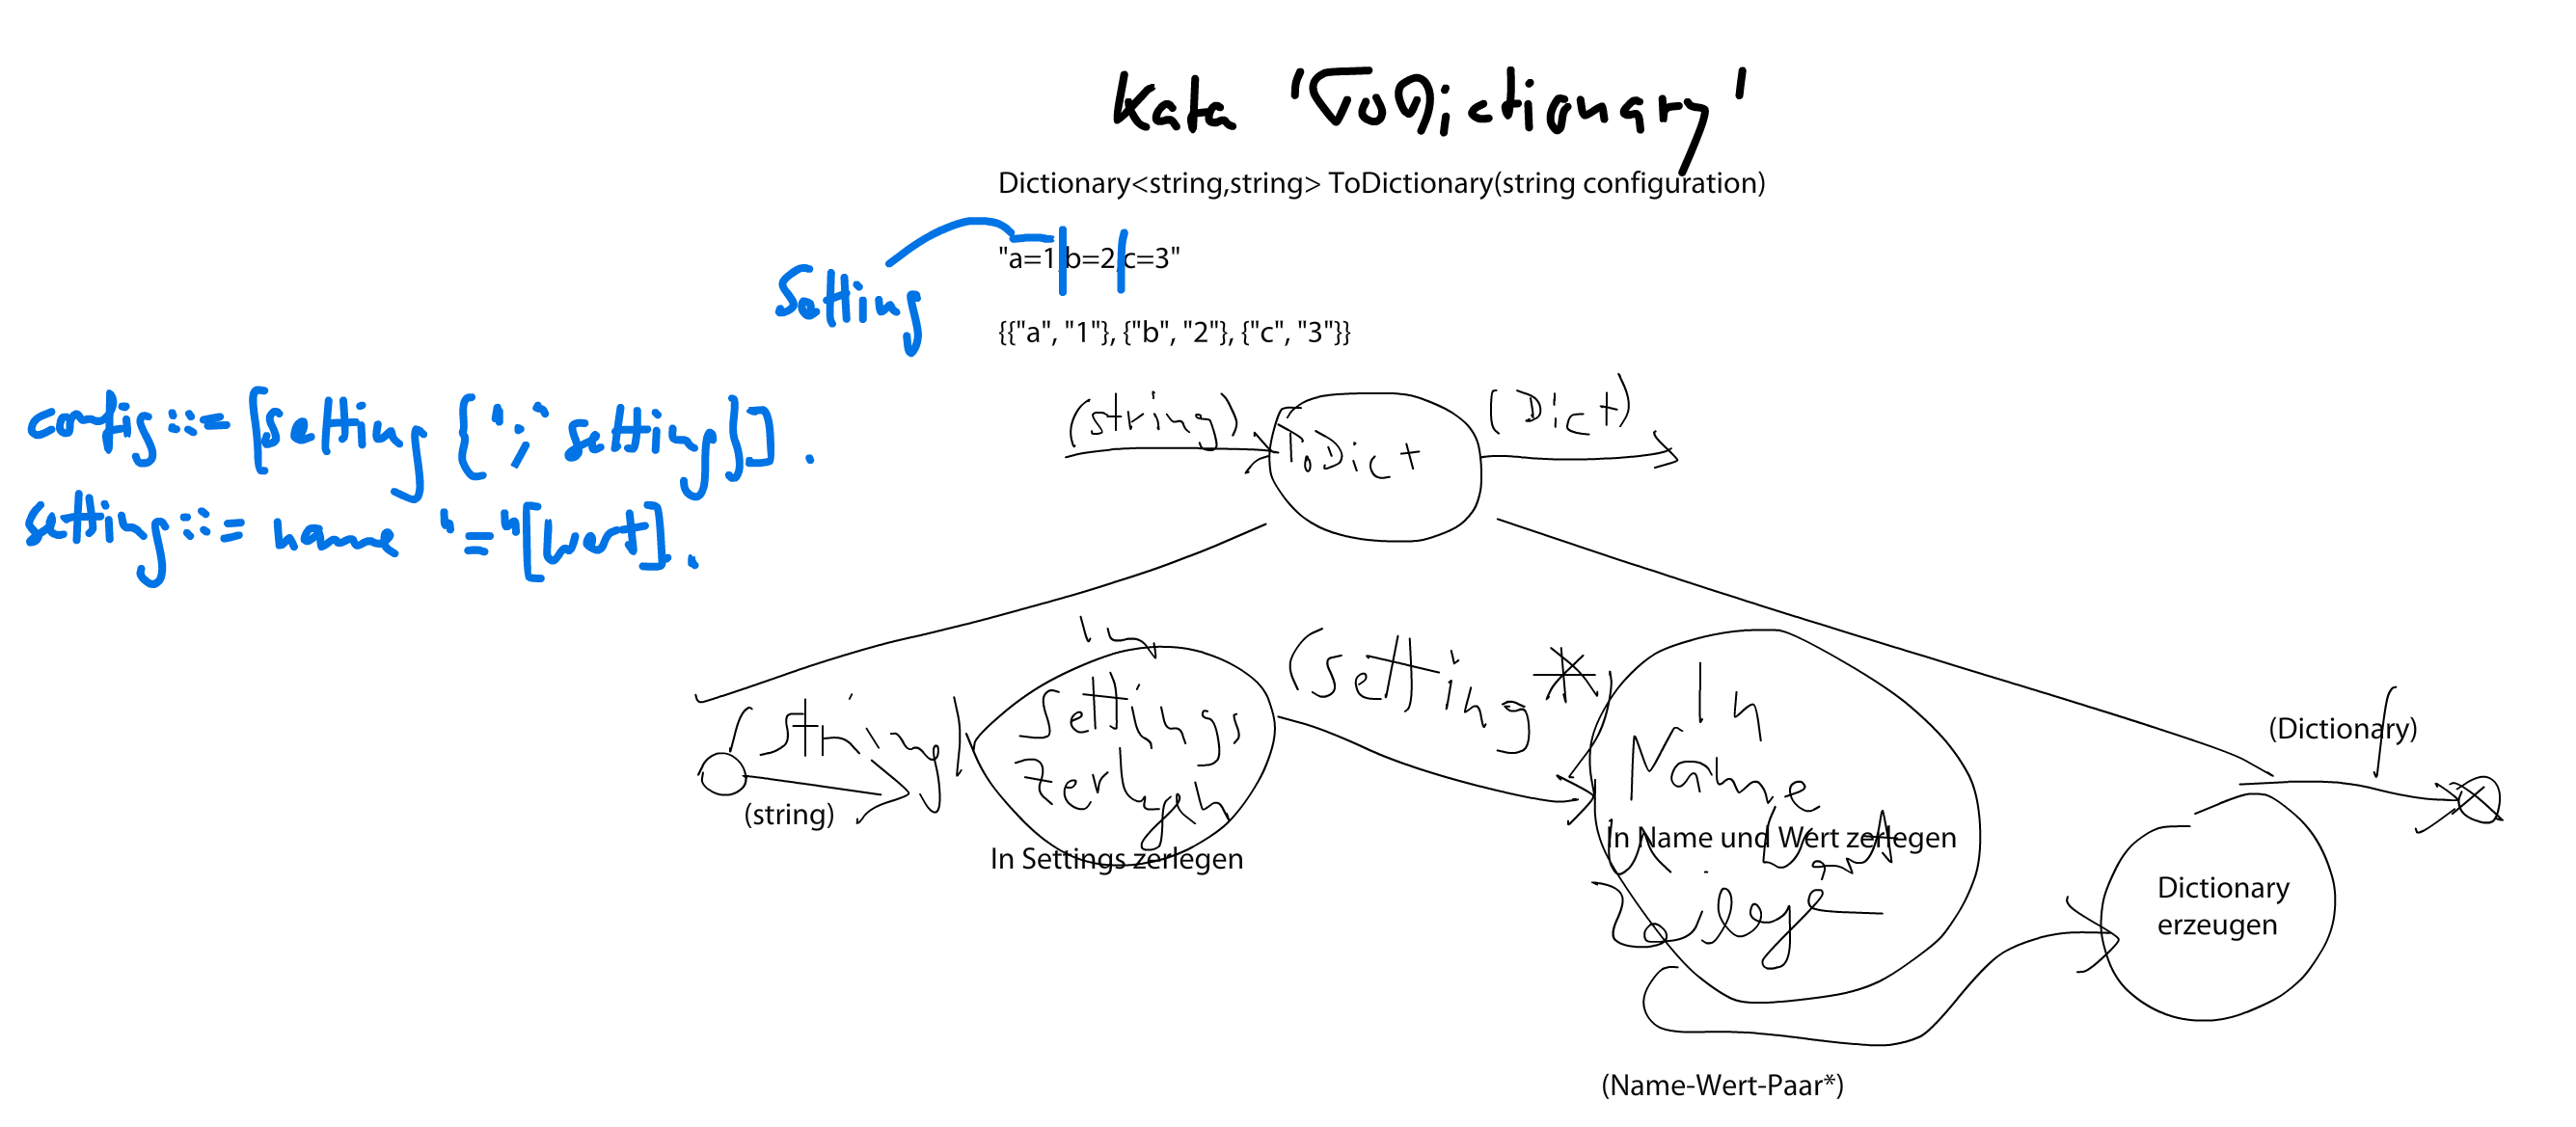 Kata 'ToDictionary'
Dictionary<string,string> ToDictionary(string configuration)
"a=1;b=2;c=3"
Setting
{{"a", "1"}, {"b", "2"}, {"c", "3"}}
config::=[setting {";" setting}].
setting::= name "="[Wert].
(string)
ToDict
(Dict)
(string)
(string)
In
Settings
zerlegen
In Settings zerlegen
(Setting*)
In
Name
u. Wert
zerlegen
In Name und Wert zerlegen
(Name-Wert-Paar*)
Dictionary
erzeugen
(Dictionary)